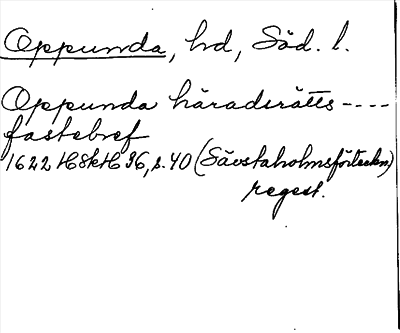 Oppunda, hd, Söd. l.
Oppunda häradsrätts----
fastebref
1622 HSkH 36, s. 40 (Sävstaholmsförteckn)
regest.